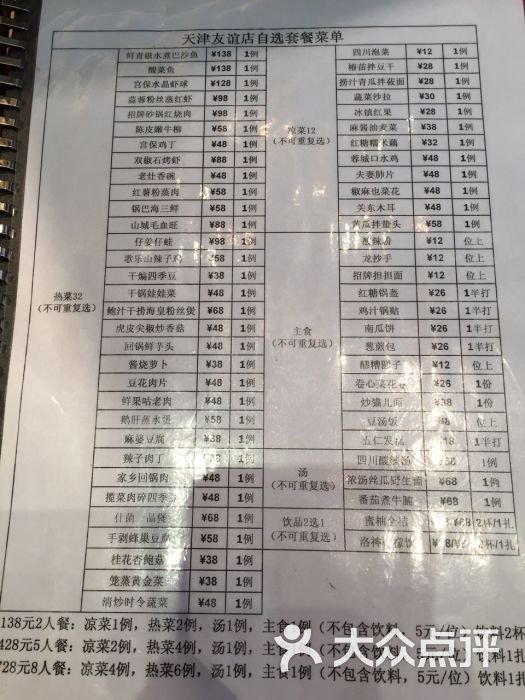 天津友谊店自选套餐菜单
热菜32
(不可重复选)
鲜青椒水煮巴沙鱼 ¥138 1例
酸菜鱼 ¥138 1例
宫保水晶虾球 ¥128 1例
蒜蓉粉丝蒸红虾 ¥98 1例
招牌砂锅红烧肉 ¥98 1例
陈皮嫩牛柳 ¥58 1例
宫保鸡丁 ¥48 1例
双椒石烤虾 ¥88 1例
老灶香碗 ¥48 1例
红薯粉蒸肉 ¥58 1例
锅巴海三鲜 ¥58 1例
山城毛血旺 ¥88 1例
仔姜仔蛙 ¥98 1例
歌乐山辣子鸡 ¥58 1例
干煸四季豆 ¥38 1例
干锅娃娃菜 ¥48 1例
鲍汁干捞海皇粉丝煲 ¥68 1例
虎皮尖椒炒香菇 ¥48 1例
回锅鲜芋头 ¥48 1例
酱烧萝卜 ¥38 1例
豆花肉片 ¥48 1例
鲜果咕老肉 ¥48 1例
鹅肝蒸水蛋 ¥38 1例
麻婆豆腐 ¥38 1例
辣子肉丁 1例
家乡回锅肉 ¥48 1例
揽菜肉碎四季 ¥48 1例
什菌 品煲 ¥68 1例
手剥蜂巢豆腐 ¥58 1例
桂花杏鲍菇 ¥38 1例
笼蒸黄金菜 ¥38 1例
清炒时令蔬菜 ¥48 1例
凉菜12
(不可重复选)
四川泡菜 ¥12 1例
椿苗拌豆干 ¥28 1例
捞汁青瓜拌莜面 ¥28 1例
蔬菜沙拉 ¥30 1例
冰镇红果 ¥28 1例
麻酱油麦菜 ¥38 1例
红糖糯米藕 ¥32 1例
蓉城口水鸡 ¥48 1例
夫妻肺片 ¥48 1例
椒麻也菜花 ¥38 1例
关东木耳 ¥48 1例
黄瓜拌蛰头 ¥58 1例
主食
(不可重复选)
酸辣粉 ¥12 位上
龙抄手 ¥12 位上
招牌担担面 ¥12 位上
红糖锅盔 ¥26 1半打
鸡汁锅贴 ¥26 1半打
南瓜饼 ¥26 1半打
葱煎包 ¥26 1半打
醪糟圆子 ¥12 位上
卷心菜花 ¥26 1份
炒猫儿面 ¥38 1份
豆汤饭 ¥38 1份
五仁发糕 1半打
汤
(不可重复选)
四川酸辣汤 1例
浓汤丝瓜野生菌 ¥68 1例
番茄煮牛腩 ¥68 1例
饮品2选1
(不可重复选)
蜜柚全 2杯/1扎
洛神 2杯/1扎
138元2人餐：凉菜1例，热菜2例，汤1例，主食1例（不包含饮料，5元/位）饮料2杯
428元5人餐：凉菜2例，热菜4例，汤1例，主食1例（不包含饮料，5元/位）饮料1扎
728元8人餐：凉菜4例，热菜6例，汤1例，主食1例（不包含饮料，5元/位）饮料1扎
大众点评